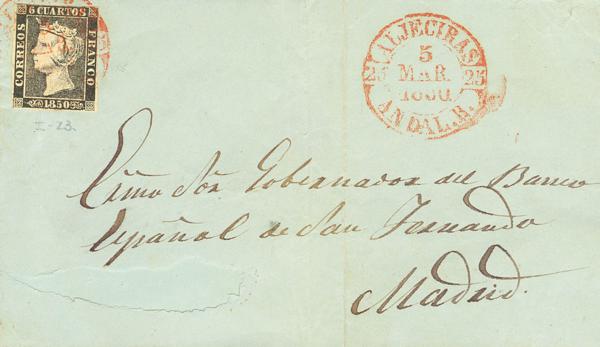 6 CUARTOS
CORREOS
FRANCO
1850
I-23.
ALJECIRAS
5
25 MAR. 25
1850
ANDAL.B.
Exmo Sör Gobernador del Banco
Español de San Fernando
Madrid.